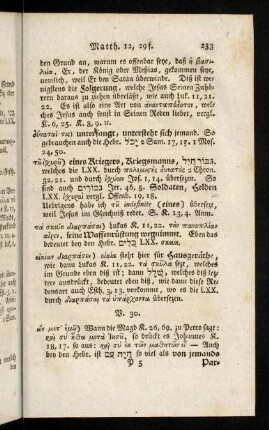 Matth. 12, 29f. 233
den Grund an, warum es offenbar seye, daß ἡ βασι-
λεία, Er, der König oder Meßias, gekommen seye,
nemlich, weil Er den Satan überwinde. Diß ist we-
nigstens die Folgerung, welche Jesus Seinen Zuhö-
rern daraus zu ziehen überläßt, wie auch Luk. 11, 21.
22. Es ist also eine Art von ἀνανταπόδοτον, wel-
ches Jesus auch sonst in Seinen Reden liebet, vergl.
K. 6, 25. K. 8, 9.
δύναταί τις) unterfängt, untersteht sich jemand. So
gebrauchen auch die Hebr. יכל 2 Sam. 17, 17. 1 Mos.
24, 50.
τῦ ἰσχυρῦ) eines Kriegers, Kriegsmanns, גבור חיל,
welches die LXX. durch δυνατὸς 2 Chron.
32, 21. und durch ἰσχύων Jos. 1, 14. übersetzen. So
sind auch גבורים Jer. 46, 5. Soldaten, Helden
LXX. ἰσχυροὶ vergl. Offenb. 19, 18.
Uebrigens habe ich τῦ (eines) übersetzt,
weil Jesus im Gleichniß redet. S. K. 13, 4. Anm.
τὰ σκεύη διαρπάσαι) Lukas K. 11, 22. τὴν πανοπλίαν
αἴρει, seine Waffenrüstung wegnimmt. Eben das
bedeutet bey den Hebr. כלים LXX. σκεύη.
οἰκίαν διαρπάσει) οἰκία steht hier für Hausgeräthe,
wie dann Lukas K. 11, 22. τὰ σκῦλα setzt, welches
im Grunde eben diß ist; dann שלל, welches diß letz-
tere ausdrückt, bedeutet eben diß, wie dann diese Re-
densart auch Esth. 3, 13. vorkommt, wo es die LXX.
durch διαρπάσαι τὰ ὑπάρχοντα übersetzen.
V. 30.
μετ' ἐμῦ) Wann die Magd K. 26, 69. zu Petro sagt:
καὶ σὺ ἦσθα μετὰ Ἰησῦ, so drückt es Johannes K.
18, 17. so aus: καὶ σὺ ἐκ τῶν μαθητῶν εἶ — Auch
bey den Hebr. ist היה עם so viel als von jemands
P 5 Par-